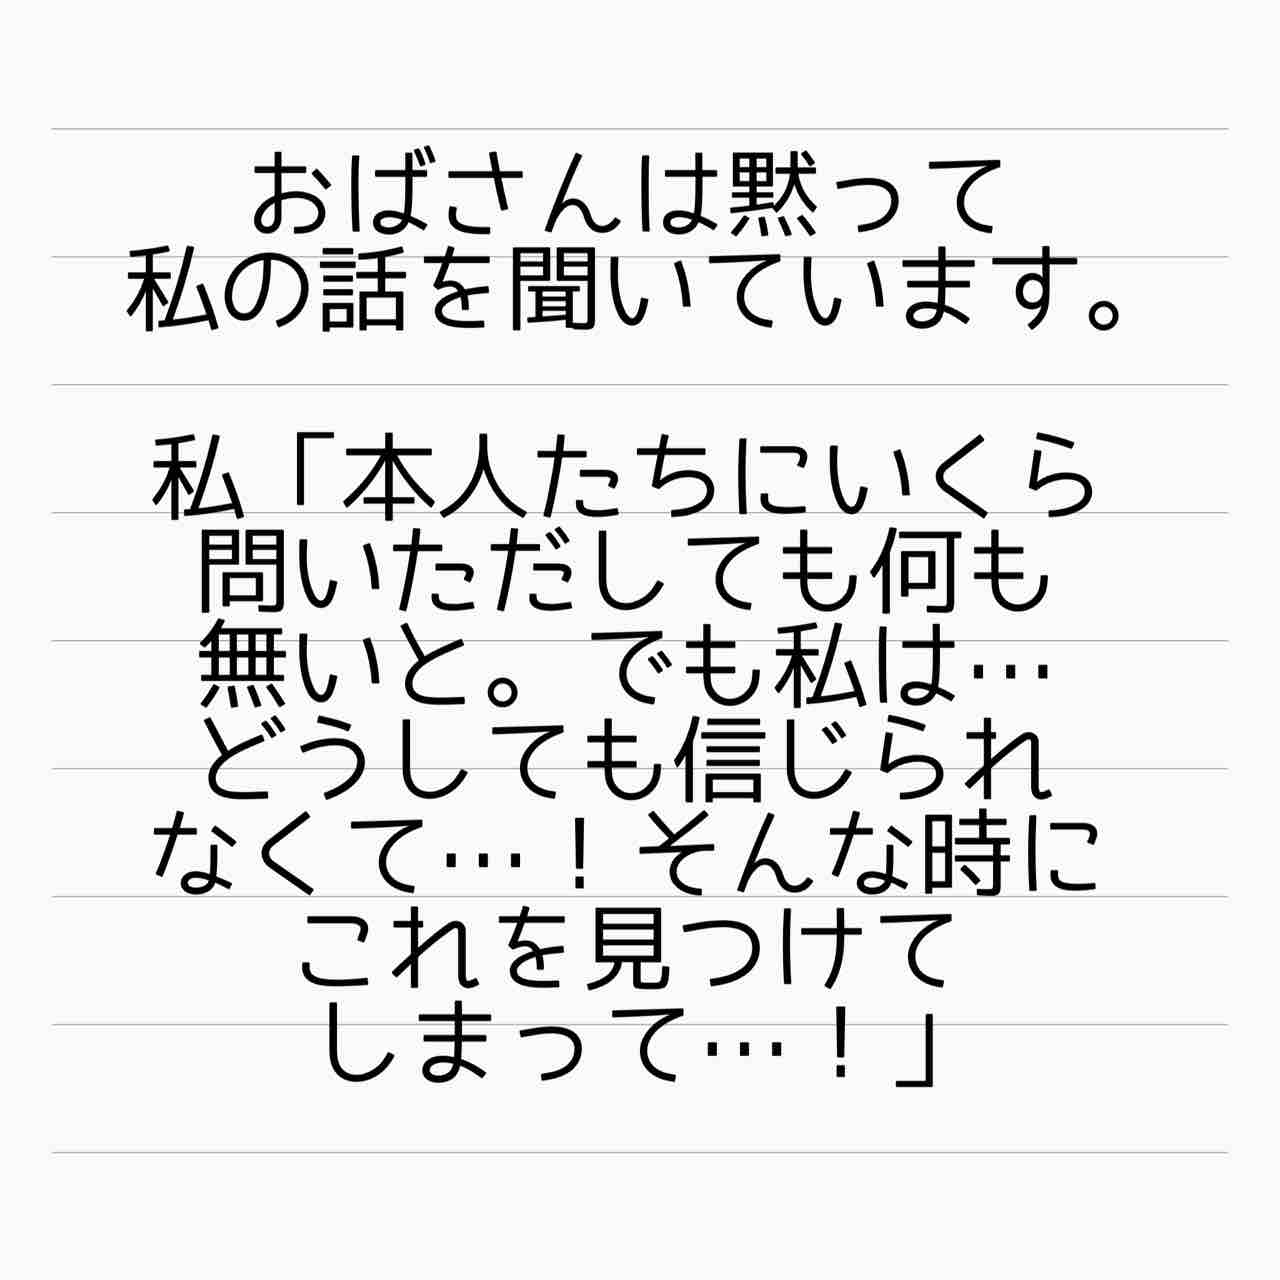 おばさんは黙って
私の話を聞いています。
私「本人たちにいくら
問いただしても何も
無いと。でも私は…
どうしても信じられ
なくて…！そんな時に
これを見つけて
しまって…！」